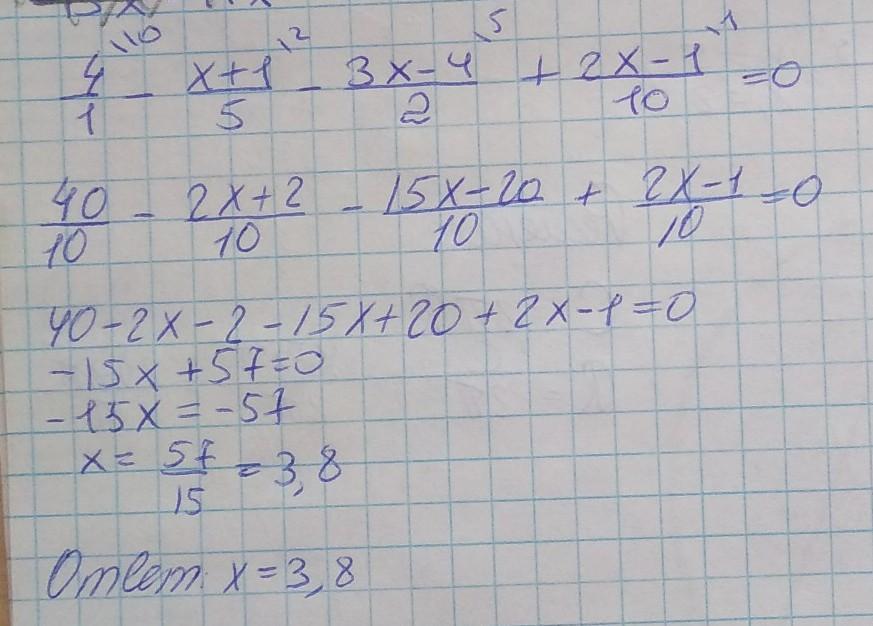 4/1 \10 - x+1/5 \2 - 3x-4/2 \5 + 2x-1/10 \1 =0
40/10 - 2x+2/10 - 15x-20/10 + 2x-1/10 =0
40-2x-2-15x+20+2x-1=0
-15x+57=0
-15x=-57
x= 57/15 = 3,8
Ответ: x=3,8